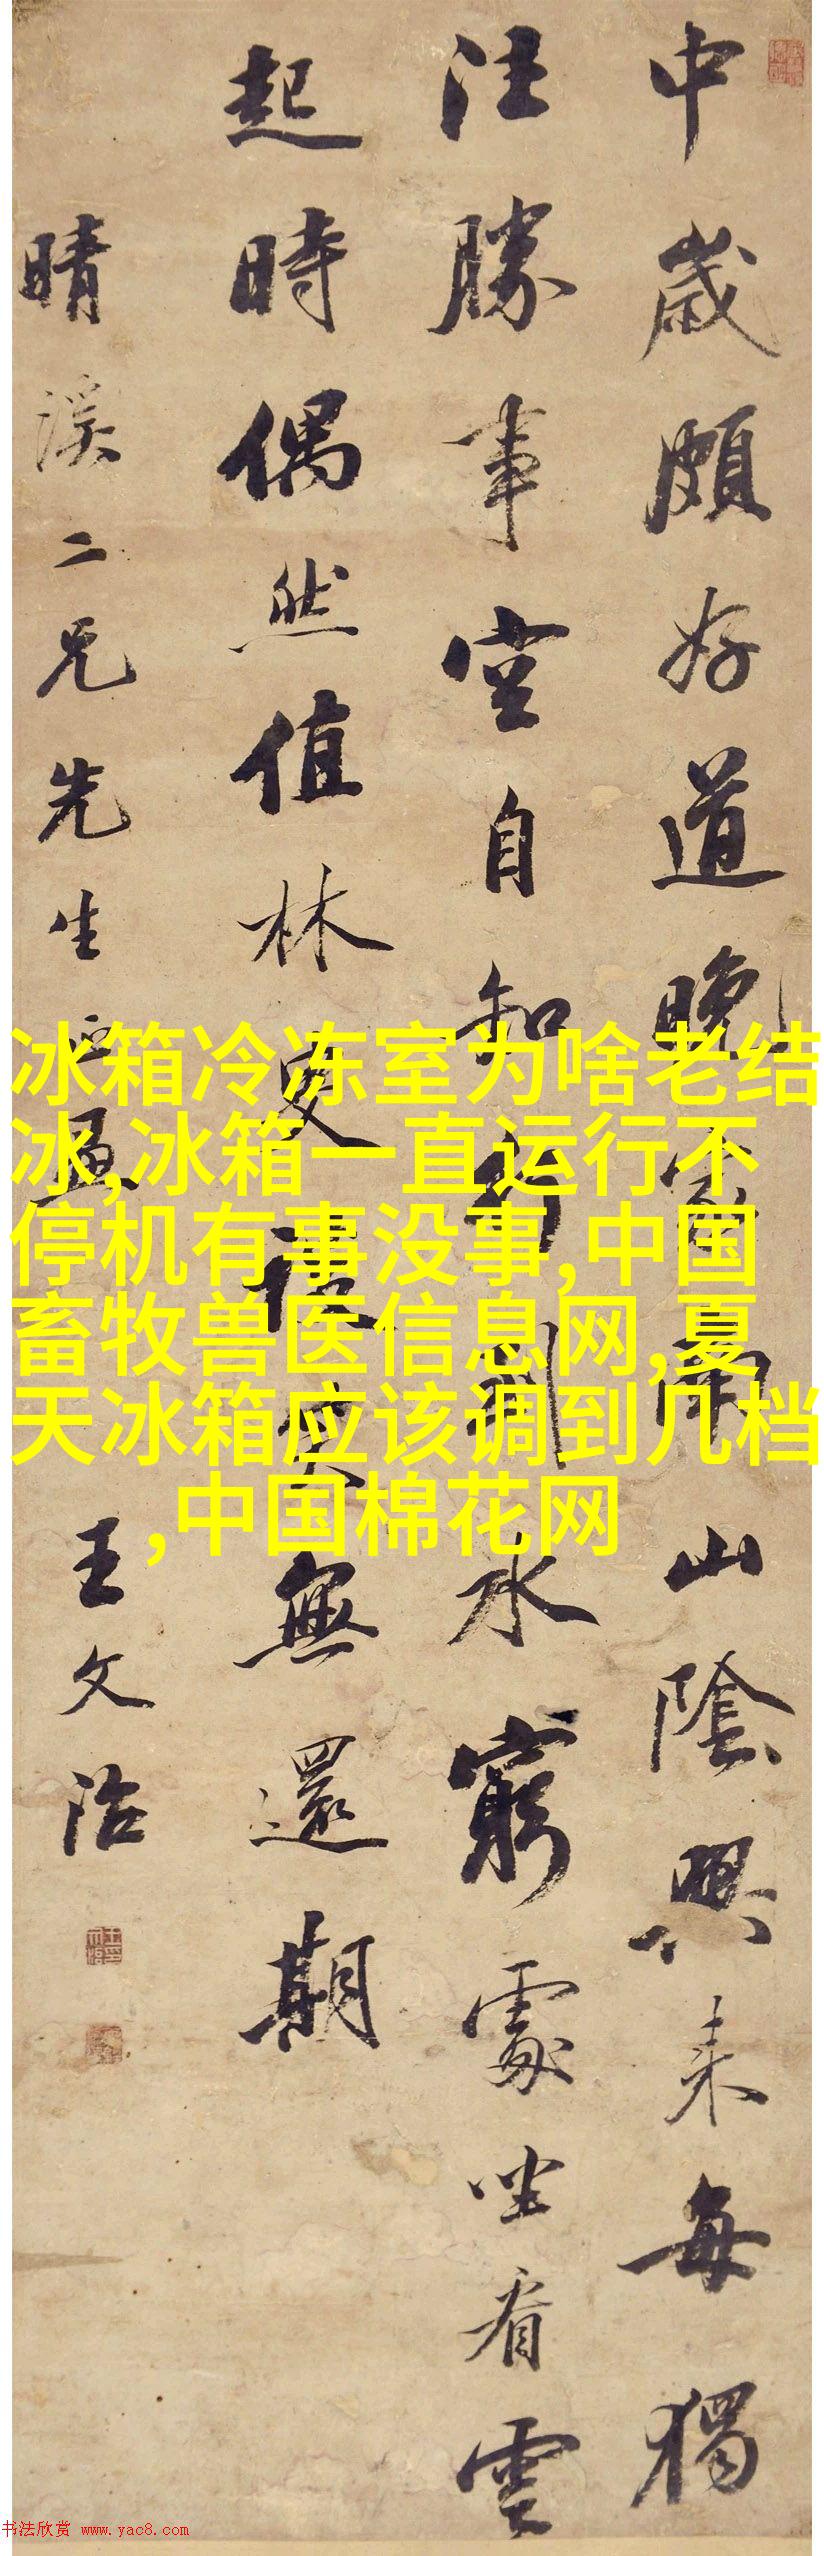 中歲頗好道晚家南山陰興來每獨
往勝事空自知行到水窮處坐看雲
起時偶然值林叟談笑無還期
晴溪二兄先生正
王文治
冰箱冷冻室为啥老结
冰,冰箱一直运行不
停机有事没事,中国
畜牧兽医信息网,夏
天冰箱应该调到几档
,中国棉花网
书法欣赏 www.yac8.com